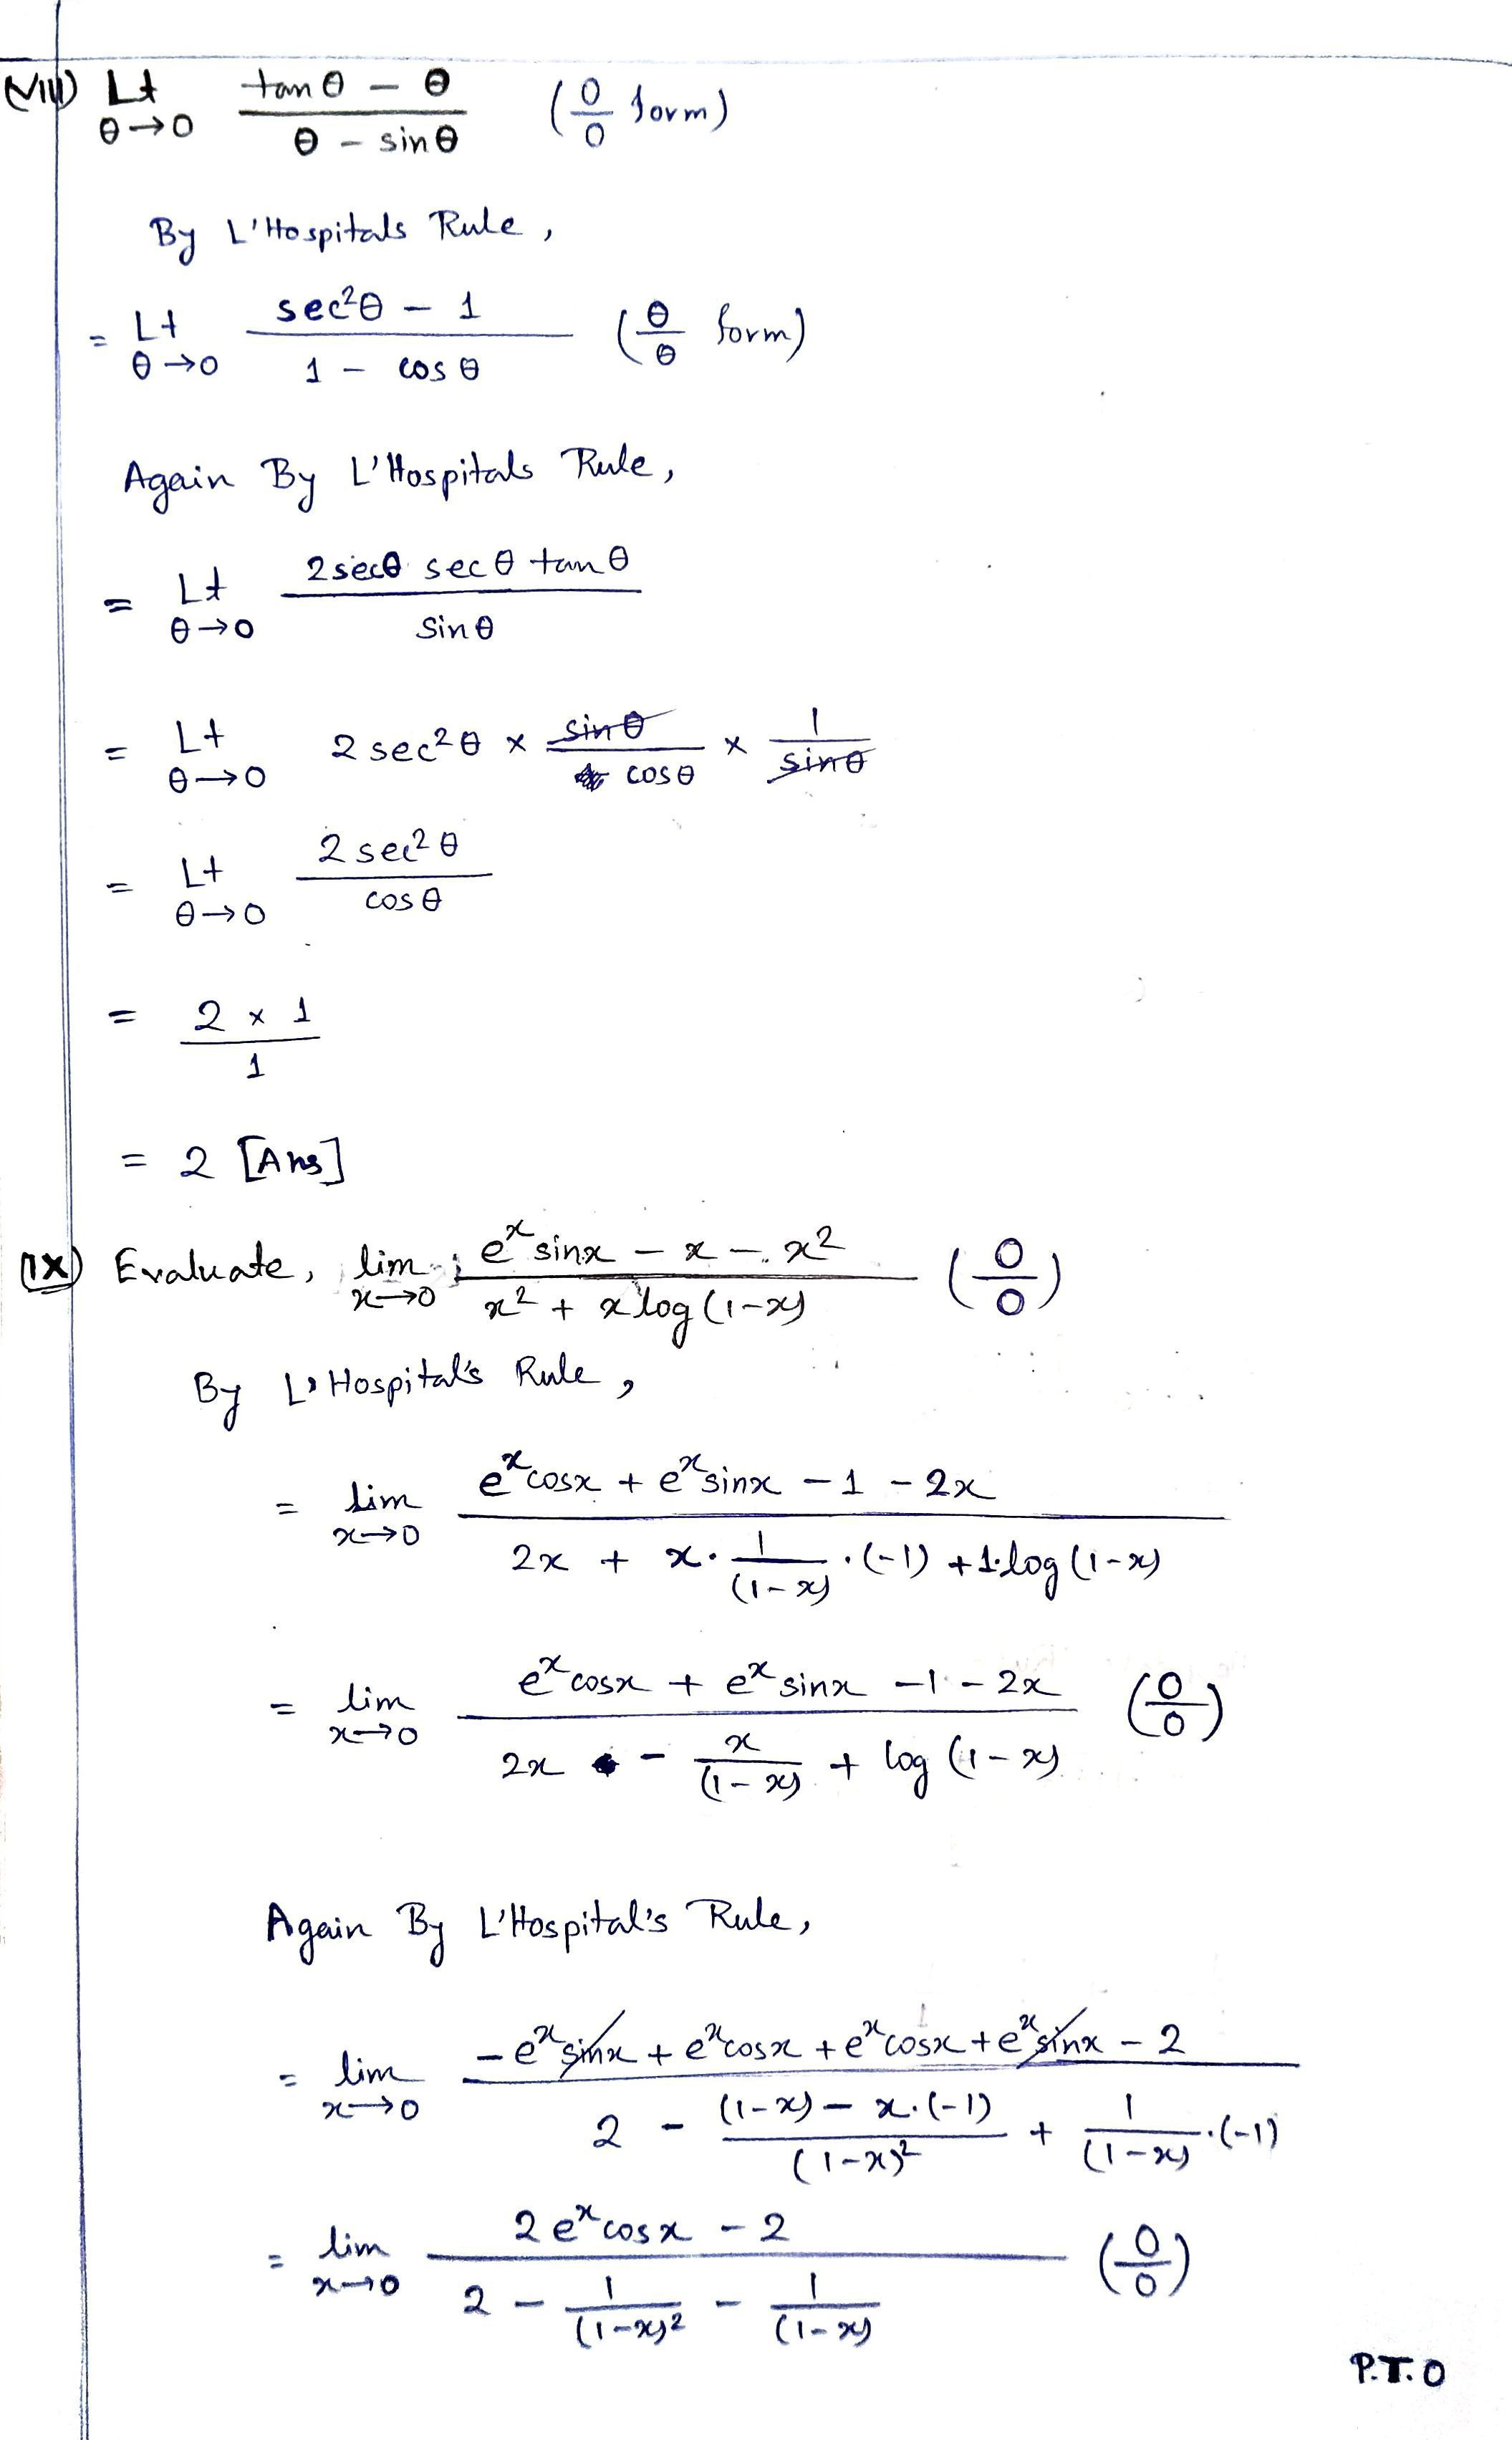 (VIII) Lt θ→0 (tan θ − θ)/(θ − sin θ) (0/0 form)
By L'Hospitals Rule,
= Lt θ→0 (sec²θ − 1)/(1 − cos θ) (θ/θ form)
Again By L'Hospitals Rule,
= Lt θ→0 (2 secθ sec θ tan θ)/(sin θ)
= Lt θ→0 2 sec²θ × sin θ/cos θ × 1/sin θ
= Lt θ→0 (2 sec²θ)/(cos θ)
= (2 × 1)/1
= 2 [Ans]
(IX) Evaluate, lim x→0 (eˣ sinx − x − x²)/(x² + x log(1−x)) (0/0)
By L'Hospital's Rule,
= lim x→0 (eˣ cosx + eˣ sinx − 1 − 2x)/(2x + x · 1/(1−x) · (−1) + 1·log(1−x))
= lim x→0 (eˣ cosx + eˣ sinx − 1 − 2x)/(2x − x/(1−x) + log(1−x)) (0/0)
Again By L'Hospital's Rule,
= lim x→0 (−eˣ sinx + eˣ cosx + eˣ cosx + eˣ sinx − 2)/(2 − ((1−x) − x·(−1))/(1−x)² + 1/(1−x) · (−1))
= lim x→0 (2 eˣ cosx − 2)/(2 − 1/(1−x)² − 1/(1−x)) (0/0)
P.T.O